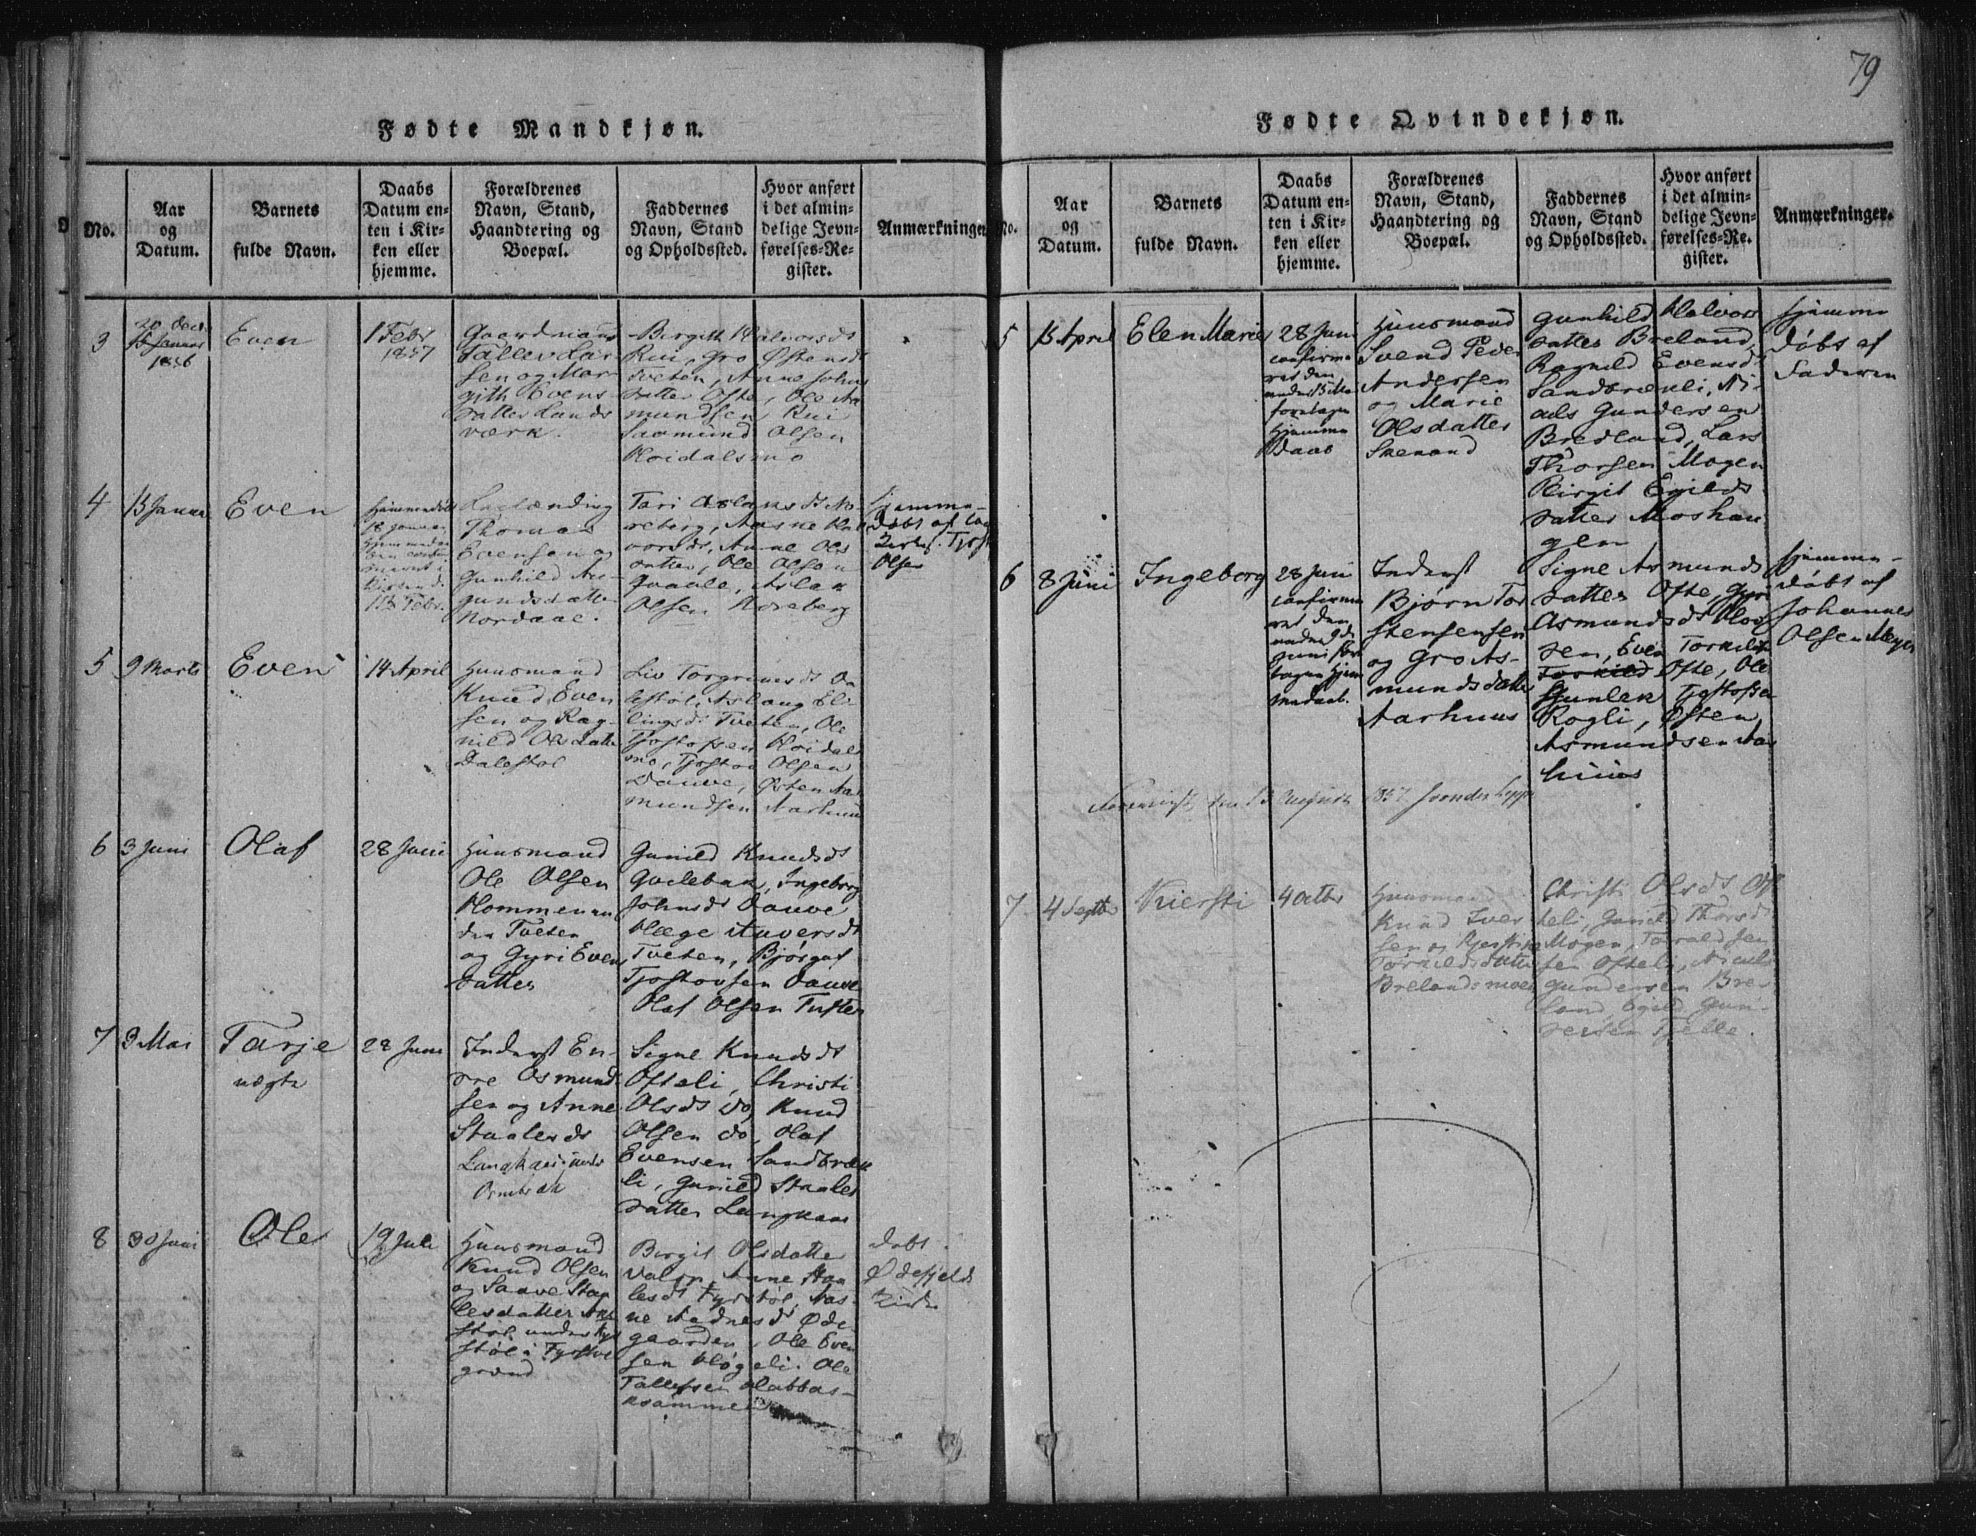 79
Fødte Mandkjøn.
No.
Aar
og
Datum.
Barnets
fulde Navn.
Daabs
Datum en-
ten i Kir-
ken eller
hjemme.
Forældrenes
Navn, Stand,
Haandtering og
Boepæl.
Faddernes
Navn, Stand
og Opholdssted.
Hvor anført
i det almin-
delige Jevn-
førelses-Re-
gister.
Anmærkninger
3
20 Decb
1856
Even
1 Febr
1857
Gaardmand
Tallev Lar-
sen og Mar-
gith Evens-
datter Lands
værk.
Birgith Halvorsdt
Rui, Gro Østensdt
Tveten, Anne Johns
datter Ofte, Ole Aa
mundsen Rui
Saamund Olsen
Hoidalsmo
4
13 Januar
Even
18 Januar
13 Febr.
Thomas
Evensen og
Gunhild As-
gundsdatter
Nordaae.
Tari Aslaksdt No-
reberg, Aasne Hal
vorsdt, Anne Ols
datter, Ole Olsen
Aslak
Olsen Noreberg
Hjemme-
døbt af
Olsen
5
9 Marts
Even
14 April
Huusmand
Knud Even
sen og Rag-
nild Olsdatter
Dalestøl
Liv Torgrimsdt Da
lestøl, Aslaug El-
lingsdt Tveten, Ole
Tjostofsen Hoidals
mo, Tjostov Olsen
Dauve, Østen Aa
mundsen Aarhuus
6
3 Juni
Olaf
28 Juni
Huusmand
Ole Olsen
Hommen un
der Tveten
og Gyri Evens
datter
Gunild Knudsdt
Qvilebak, Ingeborg
Johnsdt Dauve
Hæge Auversdt
Tveten, Bjørguf
Tjostovsen Dauve
Olaf Olsen Tufter
7
3 Mai
Tarje
uægte
28 Juni
Inderst En-
dre Osmund
sen og Anne
Staalesdt
Signe Knudsdt
Ofteli, Christi
Olsdt do, Knud
Olsen do, Olaf
Evensen Sandbræk
li, Gunild Staales
datter Langkaas
8
30 Juni
Ole
19 Juli
Huusmand
Knud Olsen
og Saave Staa
lesdatter
støl under Fyr
støl i Fyrisdal
grænd
Birgit Olsdatter
Anne Staa
lesdt Fyrstøl, Aas-
ne Aadnesdt Øde-
gaarden, Ole Even
sen Høgeli, Ole
Tallefsen
døbt
Ødefjelds
Kirke
Fødte Qvindekjøn.
No.
Aar
og
Datum.
Barnets
fulde Navn.
Daabs
Datum en-
ten i Kir-
ken eller
hjemme.
Forældrenes
Navn, Stand,
Haandtering og
Boepæl.
Faddernes
Navn, Stand
og Opholdssted.
Hvor anført
i det almin-
delige Jevn-
førelses-Re-
gister.
Anmærkninger.
5
15 April
Elen Marie
28 Juni
confirme
ret den
under 15 Mai
foretagne
Hjemme
Daab
Huusmand
Svend Peder
Andersen
og Marie
Olsdatter
Skenand
Gunhild Halvors
datter Breland,
Ragnild Evensdt
Sandbrækli, Ni-
uls Gundersen
Breland, Lars
Thorsen Mogen
Birgit Egilds
datter Moshau
gen
Hjemme
døbt af
Faderen
6
8 Juni
Ingeborg
28 Juni
confirme
ret den
under 9de
Juni fore
tagne Hjem
medaab.
Inderst
Bjørn Tor
stensensen
og Gro As-
mundsdatter
Aarhuus
Signe Asmunds
datter Ofte, Gyri
Asmundsdt
sen, Even Torkilds
Torkild Ofte, Ole
Gunlek Tjostofsen
Rogli, Østen
Asmundsen Aar
huus
Hjemme-
døbt af
Johannes
Olsen Meyer
August 1857
7
4 Septbr
Kiersti
4 Octbr
Huusmand
Knud Iver
sen og Kjerstine
Torkildsdatter
Brelandsmoen
Christi Olsdt Of
teli, Gunild Thorsdt
Mogen, Torald Jen
sen Ofteli, Niculs
Gundersen Bre-
land, Egild Gun-
dersen Fjelle.